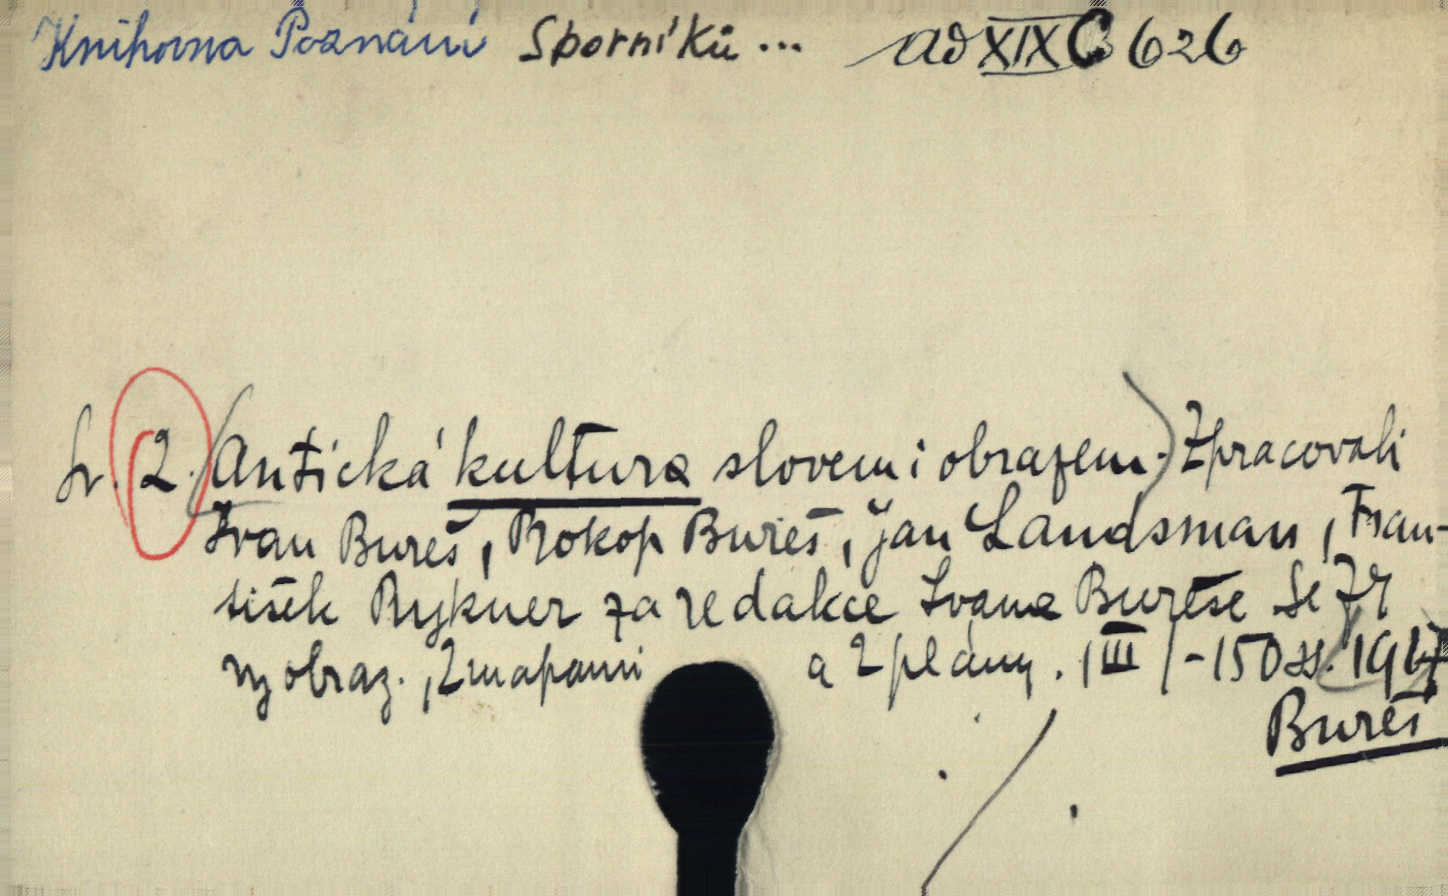 Knihovna Poznání Sborníků ... ad XIX C 626
Sv. 2. Antická kultura slovem i obrazem. Zpracovali
Ivan Bureš, Prokop Bureš, Jan Landsman, Fran-
tišek Rykner za redakce Ivana Bureše Se 78
vyobraz., 2 mapami a 2 plány. (III) - 150 ss. 1947
Bureš